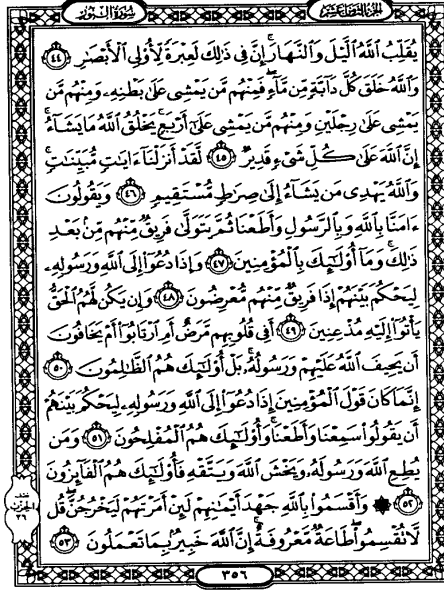 الجزء الثامن عشر
سورة النور
يُقَلِّبُ ٱللَّهُ ٱلَّيْلَ وَٱلنَّهَارَ إِنَّ فِي ذَٰلِكَ لَعِبْرَةً لِّأُولِي ٱلْأَبْصَٰرِ ٤٤
وَٱللَّهُ خَلَقَ كُلَّ دَآبَّةٍ مِّن مَّآءٍ فَمِنْهُم مَّن يَمْشِي عَلَىٰ بَطْنِهِۦ وَمِنْهُم مَّن
يَمْشِي عَلَىٰ رِجْلَيْنِ وَمِنْهُم مَّن يَمْشِي عَلَىٰٓ أَرْبَعٍ يَخْلُقُ ٱللَّهُ مَا يَشَآءُ
إِنَّ ٱللَّهَ عَلَىٰ كُلِّ شَيْءٍ قَدِيرٌ ٤٥ لَّقَدْ أَنزَلْنَآ ءَايَٰتٍ مُّبَيِّنَٰتٍ
وَٱللَّهُ يَهْدِي مَن يَشَآءُ إِلَىٰ صِرَٰطٍ مُّسْتَقِيمٍ ٤٦ وَيَقُولُونَ
ءَامَنَّا بِٱللَّهِ وَبِٱلرَّسُولِ وَأَطَعْنَا ثُمَّ يَتَوَلَّىٰ فَرِيقٌ مِّنْهُم مِّنۢ بَعْدِ
ذَٰلِكَ وَمَآ أُو۟لَٰٓئِكَ بِٱلْمُؤْمِنِينَ ٤٧ وَإِذَا دُعُوٓا۟ إِلَى ٱللَّهِ وَرَسُولِهِۦ
لِيَحْكُمَ بَيْنَهُمْ إِذَا فَرِيقٌ مِّنْهُم مُّعْرِضُونَ ٤٨ وَإِن يَكُن لَّهُمُ ٱلْحَقُّ
يَأْتُوٓا۟ إِلَيْهِ مُذْعِنِينَ ٤٩ أَفِي قُلُوبِهِم مَّرَضٌ أَمِ ٱرْتَابُوٓا۟ أَمْ يَخَافُونَ
أَن يَحِيفَ ٱللَّهُ عَلَيْهِمْ وَرَسُولُهُۥ بَلْ أُو۟لَٰٓئِكَ هُمُ ٱلظَّٰلِمُونَ ٥٠
إِنَّمَا كَانَ قَوْلَ ٱلْمُؤْمِنِينَ إِذَا دُعُوٓا۟ إِلَى ٱللَّهِ وَرَسُولِهِۦ لِيَحْكُمَ بَيْنَهُمْ
أَن يَقُولُوا۟ سَمِعْنَا وَأَطَعْنَا وَأُو۟لَٰٓئِكَ هُمُ ٱلْمُفْلِحُونَ ٥١ وَمَن
يُطِعِ ٱللَّهَ وَرَسُولَهُۥ وَيَخْشَ ٱللَّهَ وَيَتَّقْهِ فَأُو۟لَٰٓئِكَ هُمُ ٱلْفَآئِزُونَ
٥٢ وَأَقْسَمُوا۟ بِٱللَّهِ جَهْدَ أَيْمَٰنِهِمْ لَئِنْ أَمَرْتَهُمْ لَيَخْرُجُنَّ قُل
لَّا تُقْسِمُوا۟ طَاعَةٌ مَّعْرُوفَةٌ إِنَّ ٱللَّهَ خَبِيرٌۢ بِمَا تَعْمَلُونَ ٥٣
الحزب
٣٦
٣٥٦